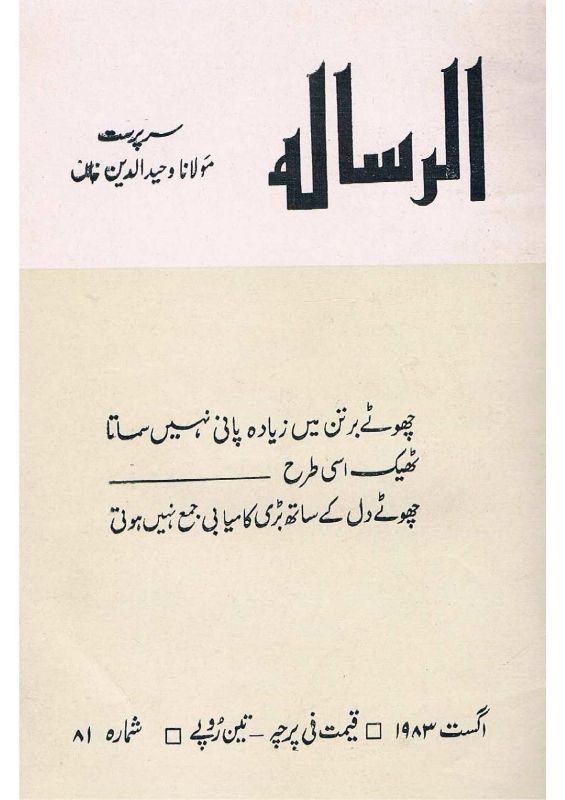 الرسالہ
سرپرست
مولانا وحید الدین خاں
چھوٹے برتن میں زیادہ پانی نہیں سماتا
ٹھیک اسی طرح ــــــــــــ
چھوٹے دل کے ساتھ بڑی کامیابی جمع نہیں ہوتی
اگست ۱۹۸۳ □ قیمت فی پرچہ – تین روپے □ شمارہ ۸۱